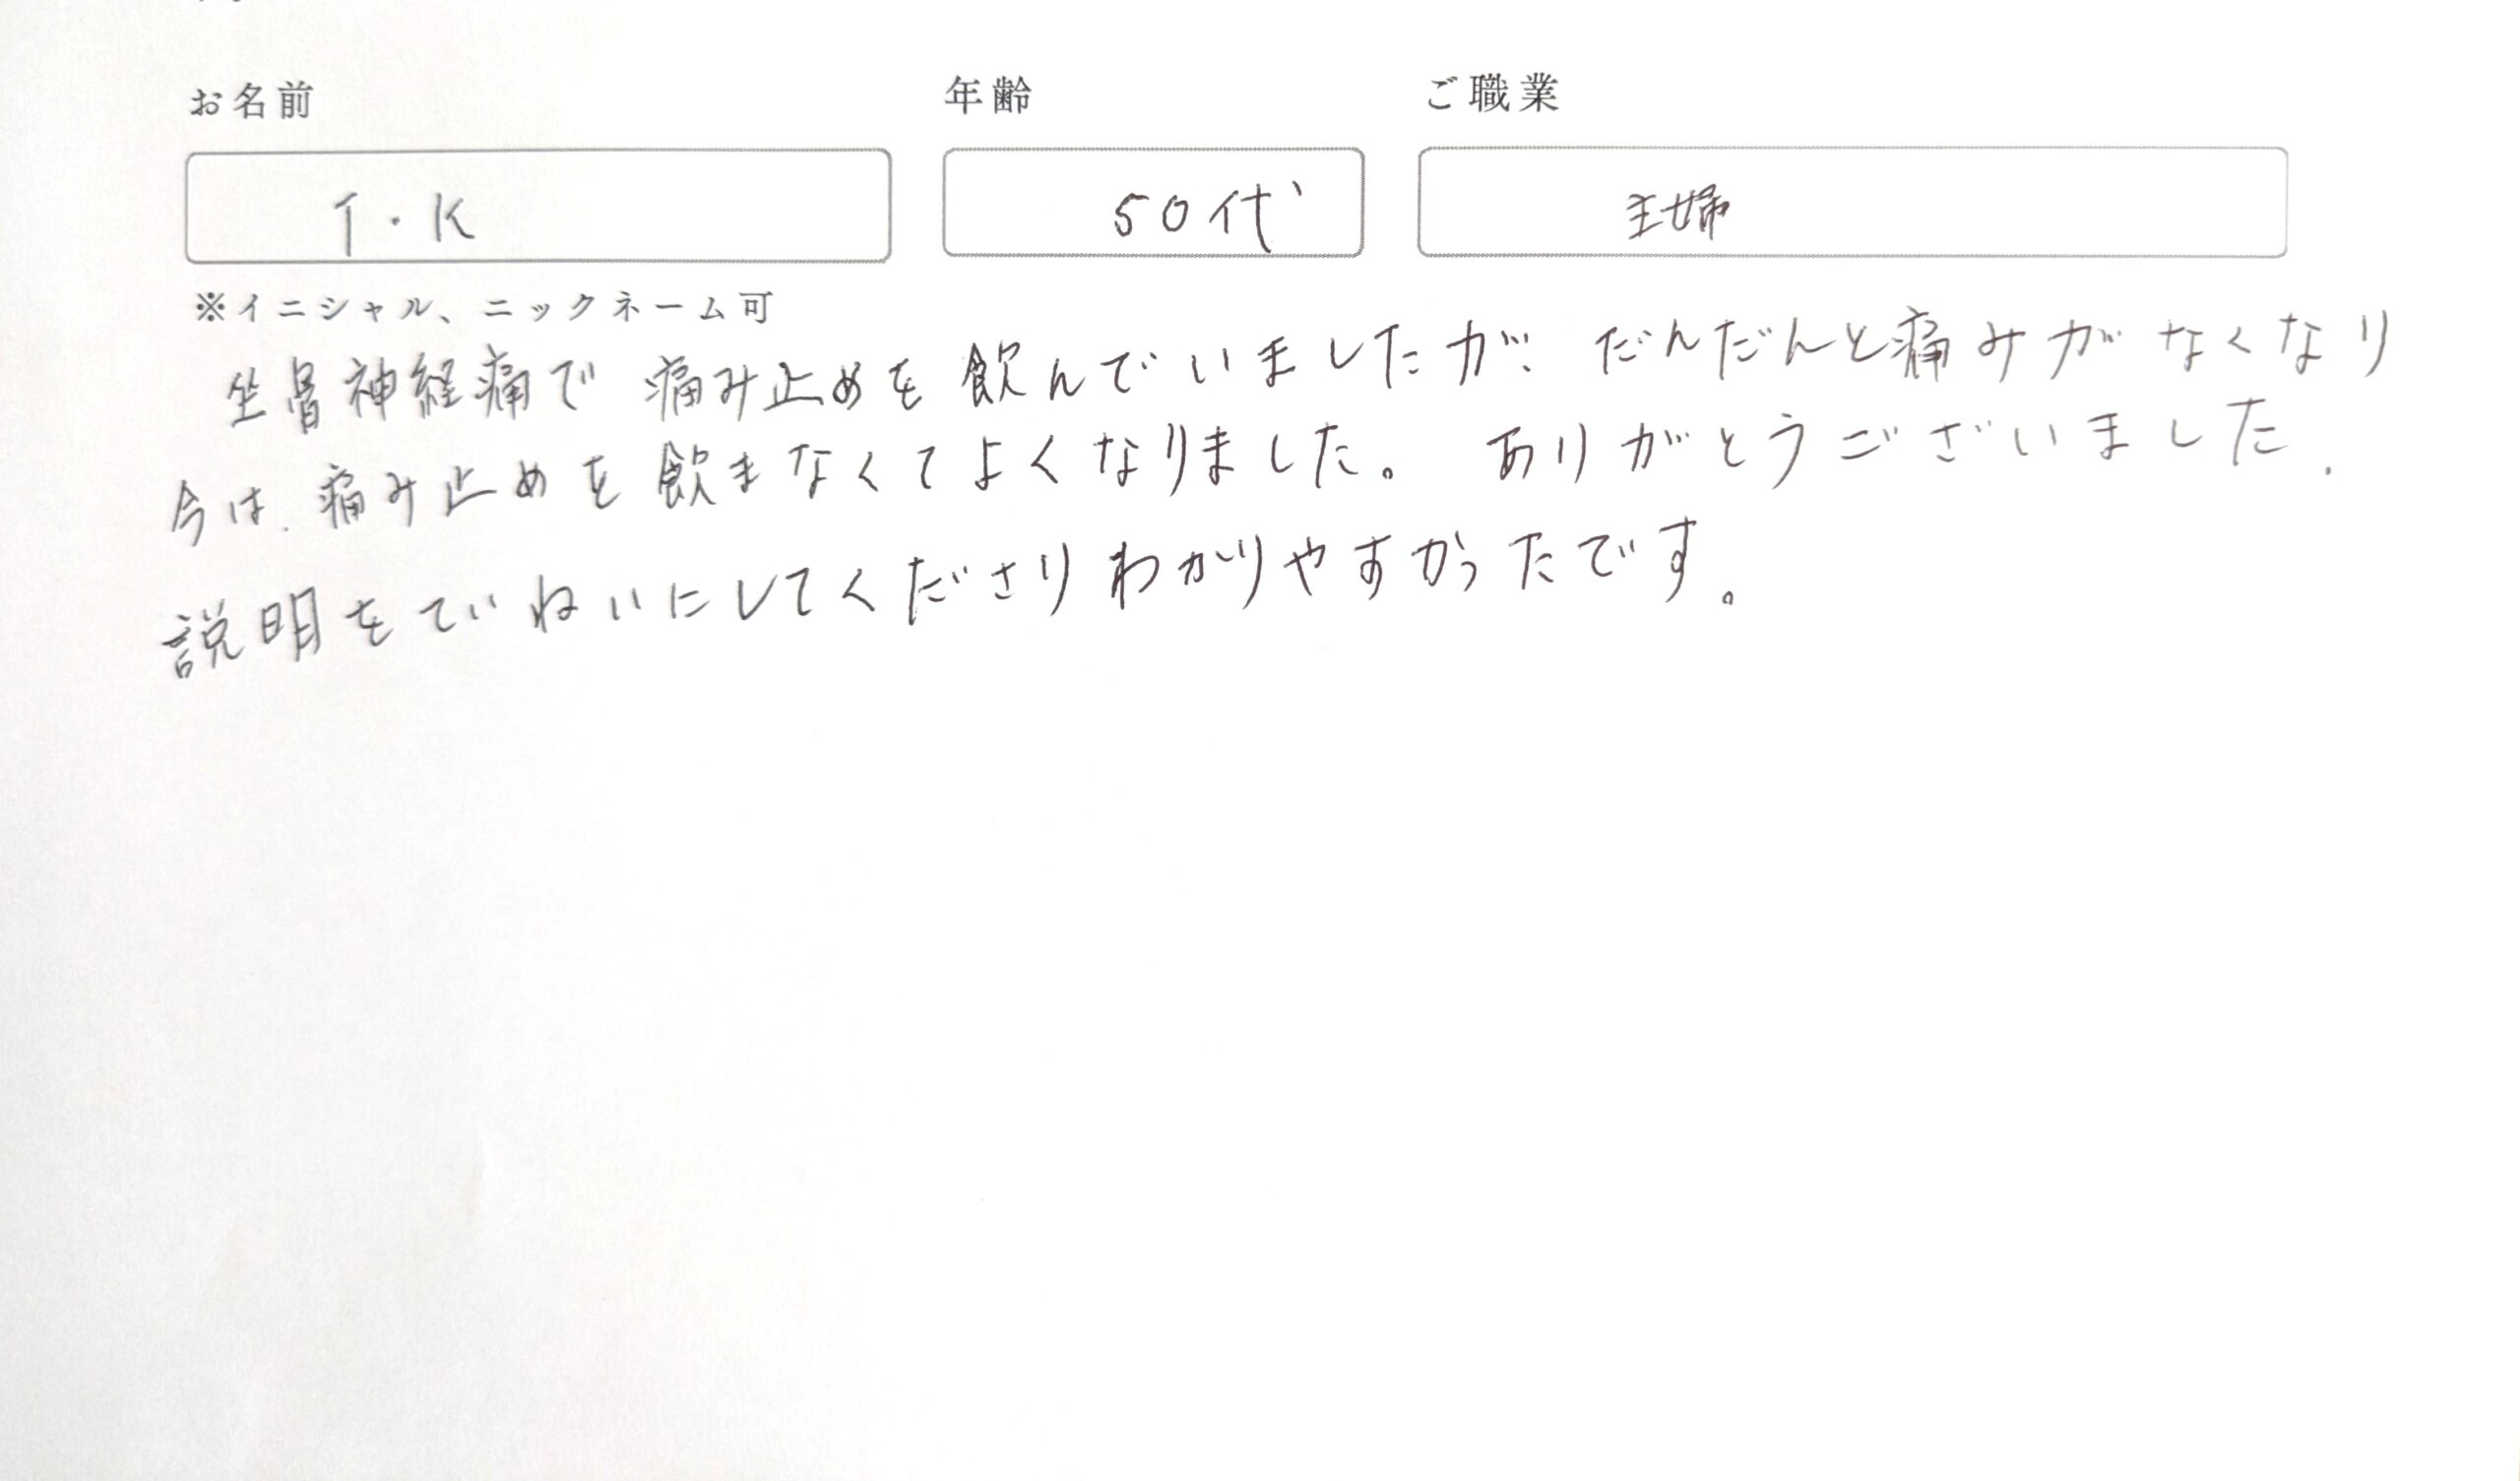 お名前 年齢 ご職業
T・K 50代 主婦
※イニシャル、ニックネーム可
坐骨神経痛で 痛み止めを飲んでいましたが、だんだんと痛みがなくなり
今は、痛み止めを飲まなくてよくなりました。 ありがとうございました。
説明をていねいにしてくださりわかりやすかったです。